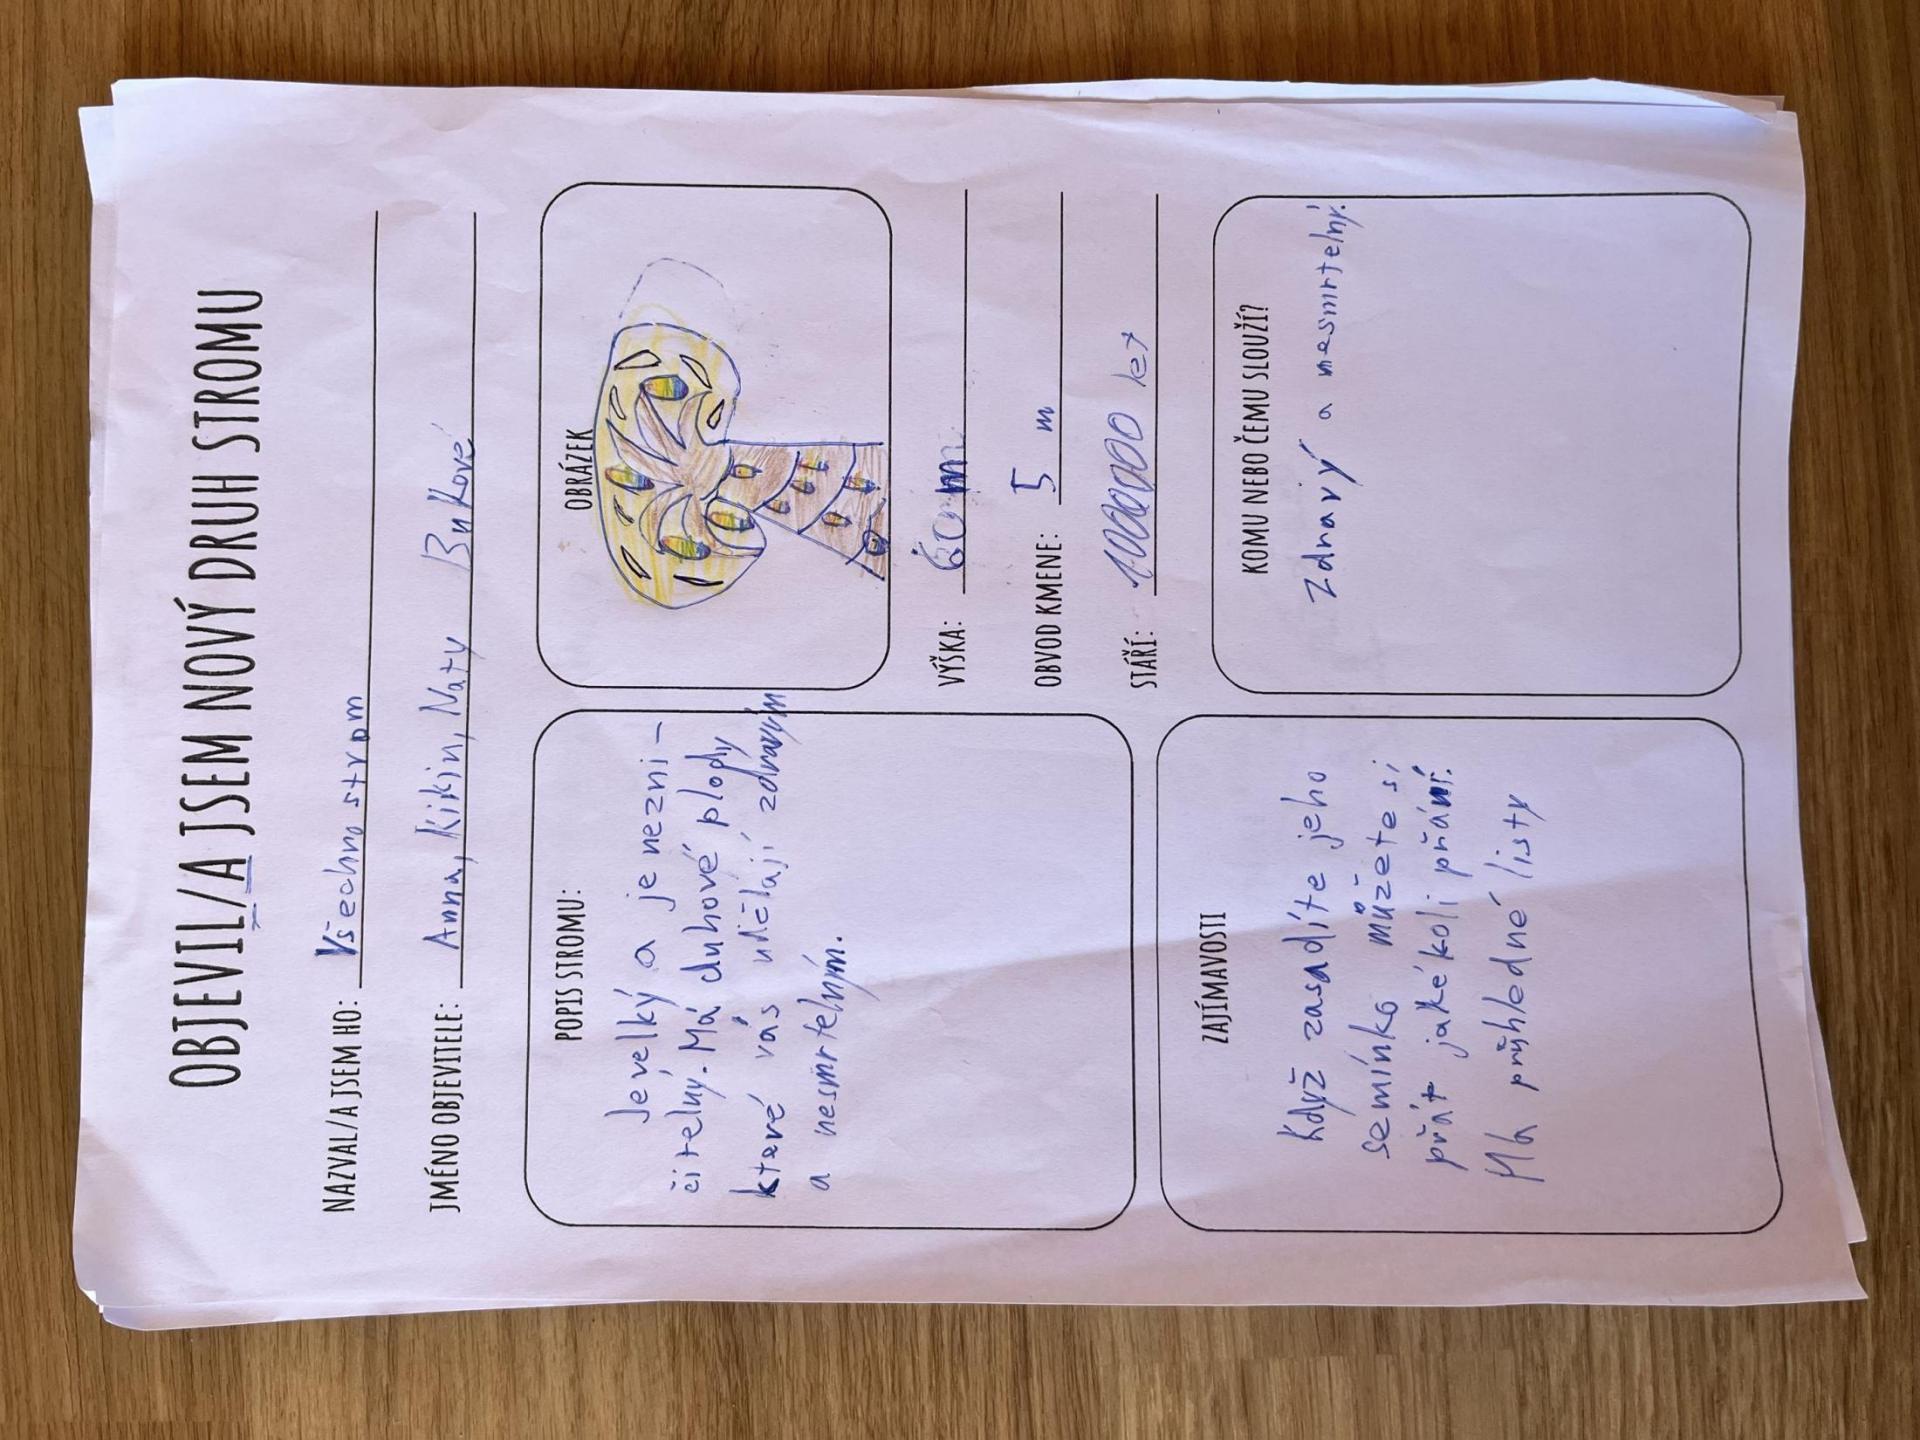 OBJEVIL/A JSEM NOVÝ DRUH STROMU
NAZVAL/A JSEM HO: Všechno strom
JMÉNO OBJEVITELE: Anna, Kikin, Naty Bukové
POPIS STROMU:
Je velký a je nezni-
čitelny. Má duhové plody
které vás udělají zdravým
a nesmrtelným.
OBRÁZEK
VÝŠKA: 60 m
OBVOD KMENE: 5 m
STÁŘÍ: let
ZAJÍMAVOSTI
Když zasadíte jeho
semínko můžete si
přát jakékoli přání.
Má průhledné listy
KOMU NEBO ČEMU SLOUŽÍ?
Zdravý a nesmrtelný.